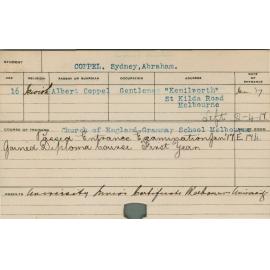 STUDENT
COPPEL, Sydney, Abraham.
AGE RELIGION PARENT OR GUARDIAN OCCUPATION ADDRESS DATE OF ENTRANCE
16 Jewish Albert Coppel Gentleman "Kenilworth" Jan 17
St Kilda Road
Melbourne
left 2-4-17
COURSE OF TRAINING Church of England Grammar School Melbourne
Passed Entrance Examination Jan '17
Joined Diploma Course First Year
RESULTS University Junior Certificate Melbourne University